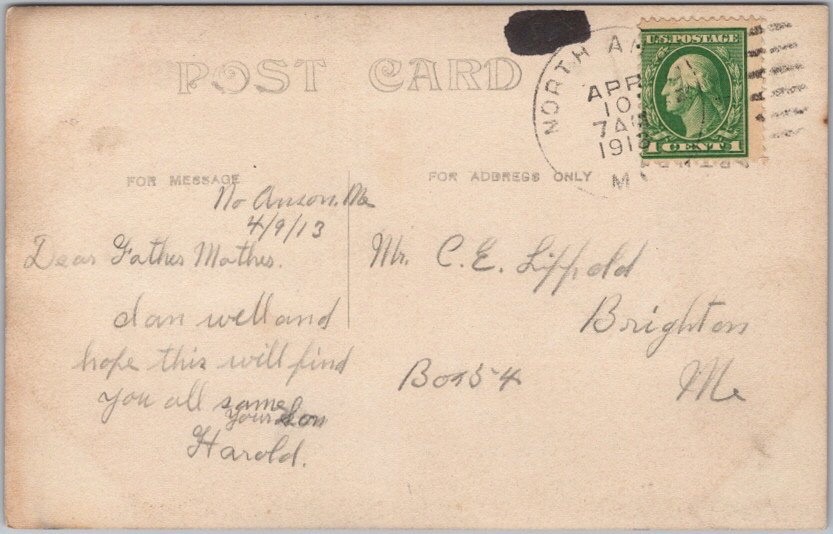 POST CARD
NORTH A
APR
10
7 AM
1913
M
U.S. POSTAGE
1 CENT 1
FOR MESSAGE
FOR ADDRESS ONLY
No Anson. Me
4/9/13
Dear Father Mother.
I am well and
hope this will find
you all same
your Son
Harold.
Mr. C. E. Lippold
Brighton
Box 54
Me